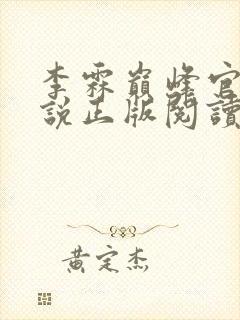 李霖巔峰官
說正版閱讀
黃定杰